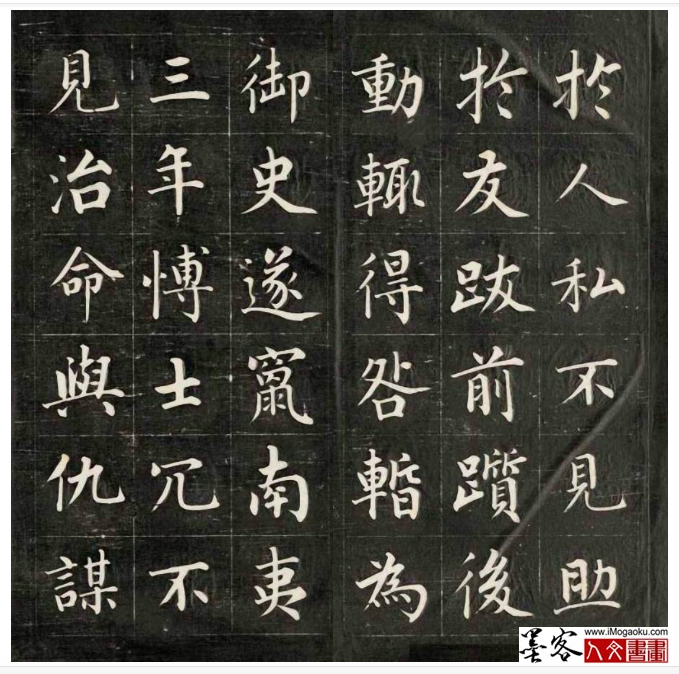 於人私不見助
於友跋前躓後
動輒得咎暫為
御史遂竄南夷
三年博士冗不
見治命與仇謀
墨客
www.iMogaoku.com
人文書畫